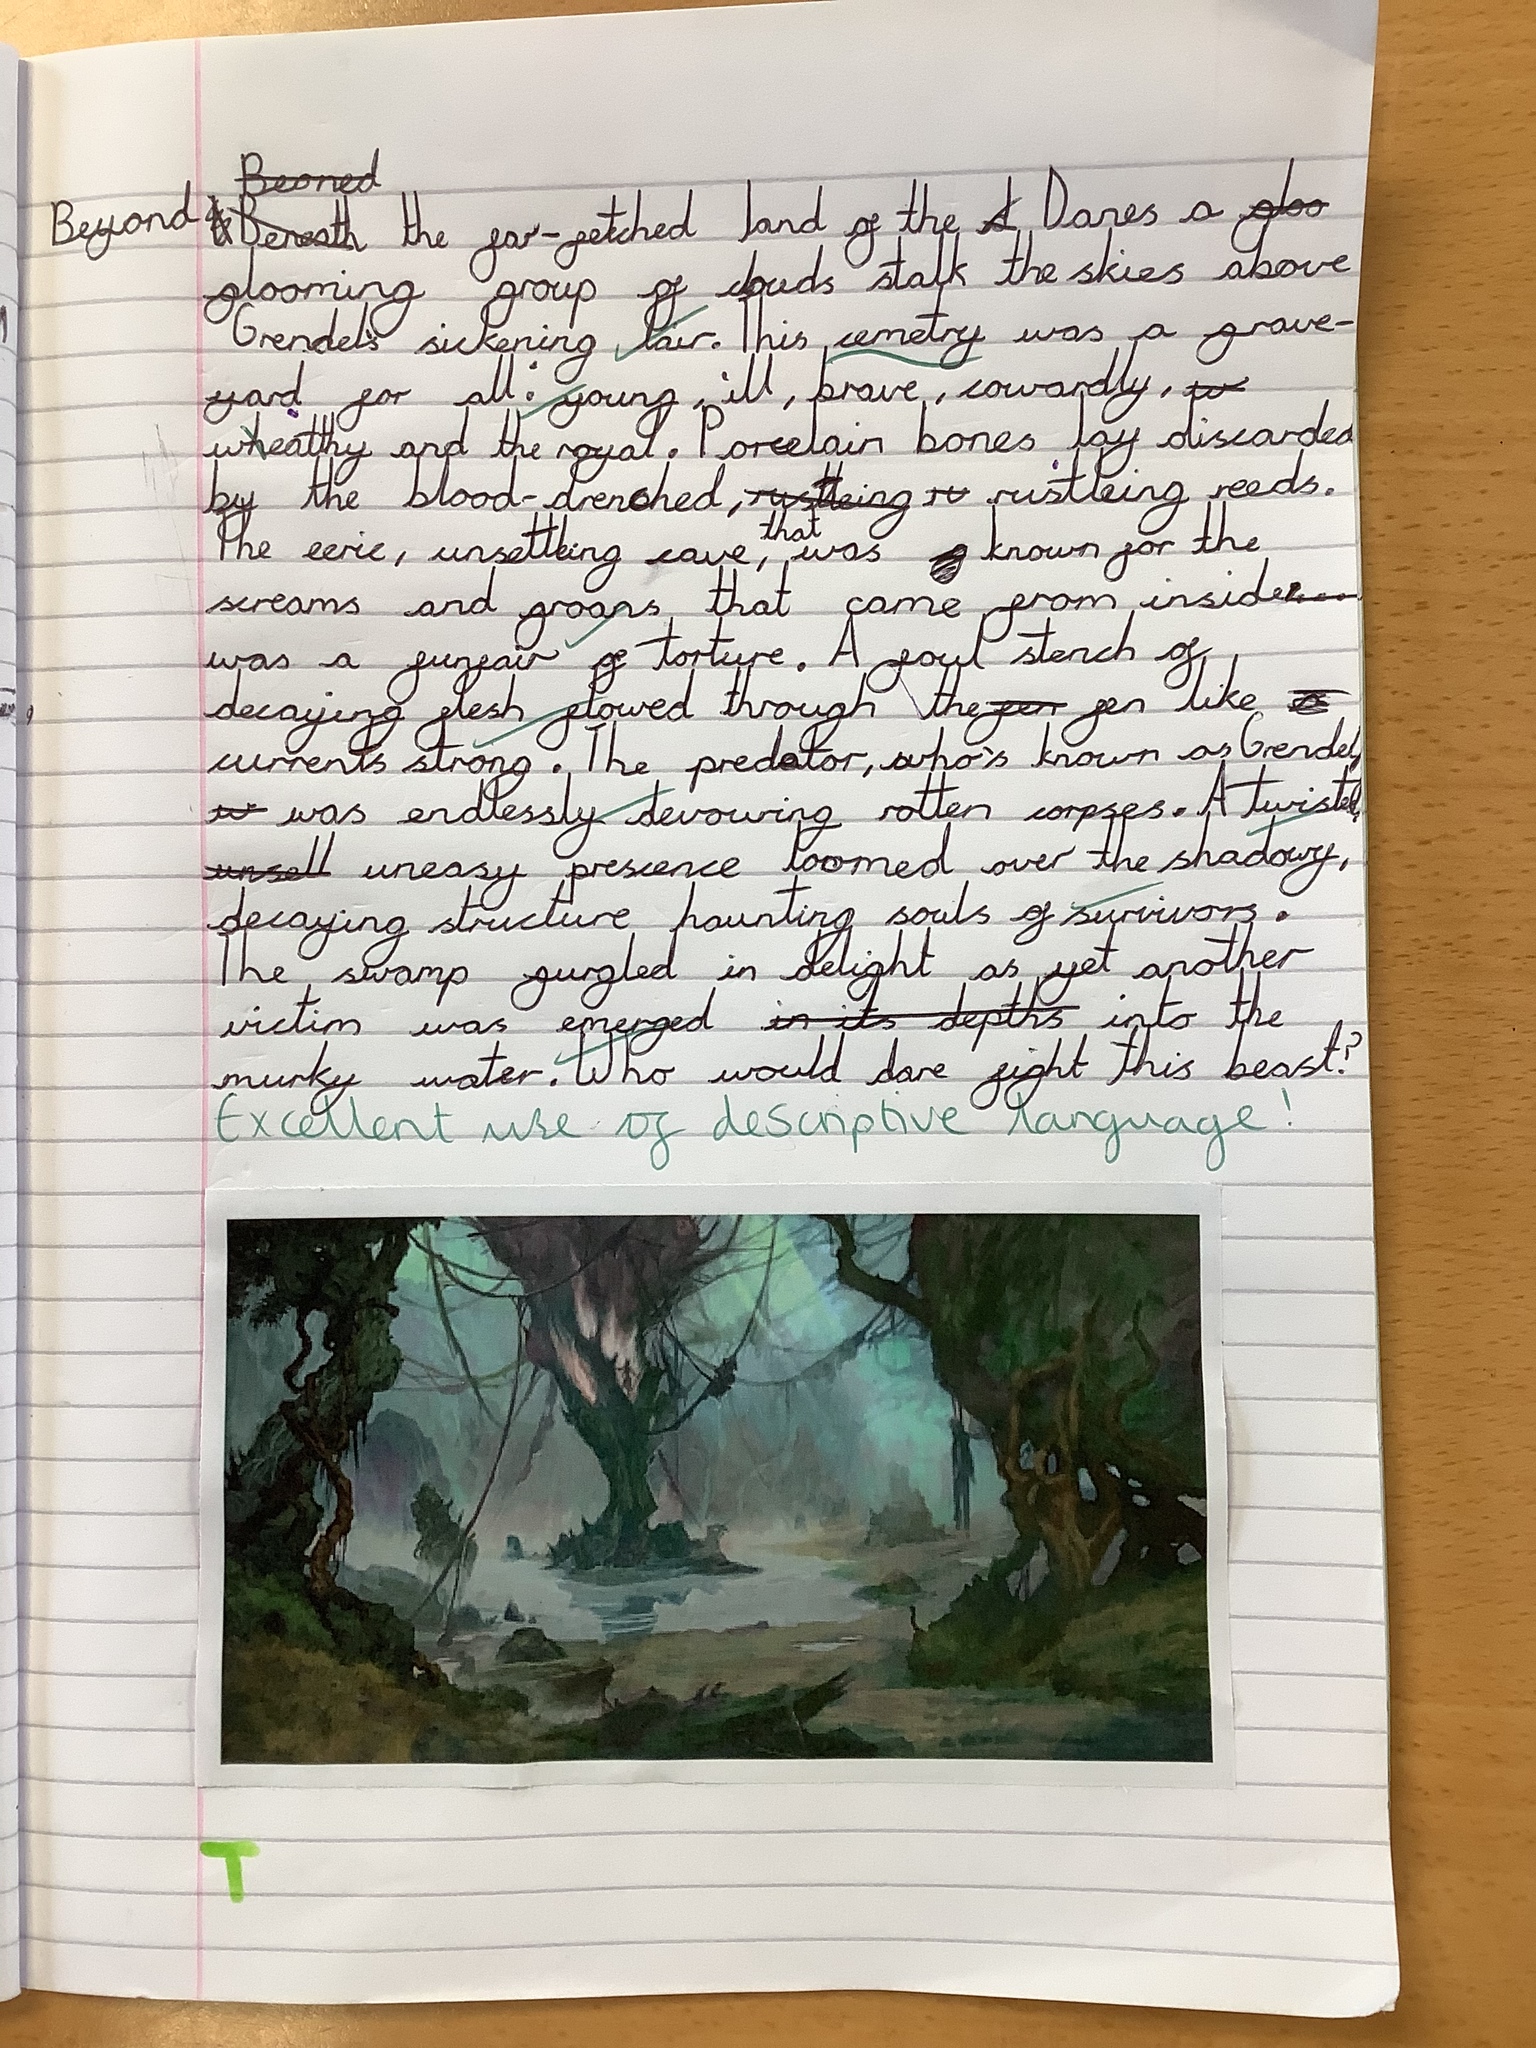 Beoned
Beyond Beneath the far-fetched land of the Danes a gloo
glooming group of clouds stalk the skies above
Grendel's sickening lair. This cemetry was a grave-
yard for all: young, ill, brave, cowardly, w
wheathy and the royal. Porcelain bones lay discarded
by the blood-drenched, rustleing r rustleing reeds.
The eerie, unsettling cave, that was known for the
screams and groans that came from inside
was a funfair of torture. A foul stench of
decaying flesh flowed through the fen fen like a
currents strong. The predator, who's known as Grendel,
w was endlessly devouring rotten corpses. A twisted,
unsett uneasy prescence loomed over the shadowy,
decaying structure haunting souls of survivors.
The swamp gurgled in delight as yet another
victim was emerged in its depths into the
murky water. Who would dare fight this beast?
Excellent use of descriptive language!
T